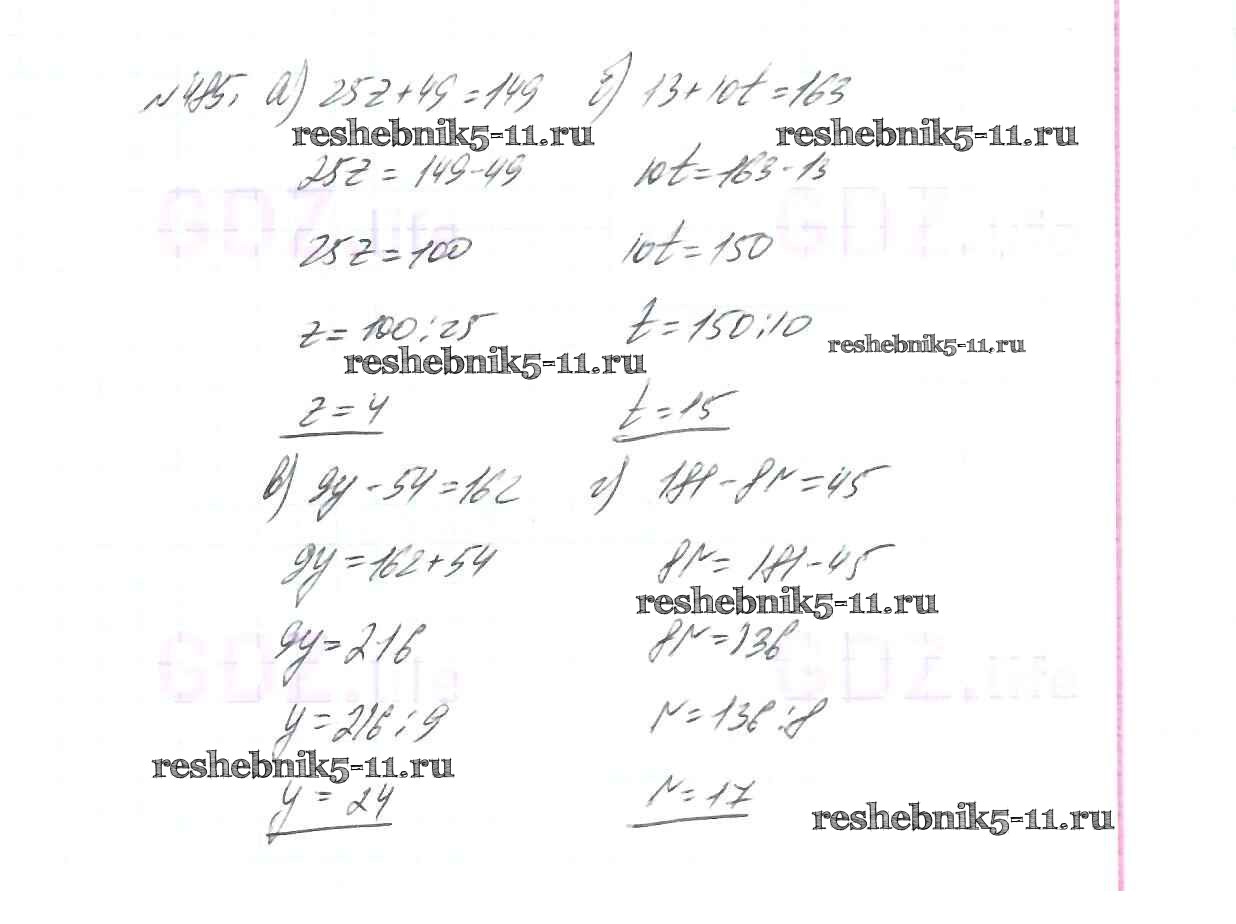 №485. а) 25z+49=149 б) 13+10t=163
reshebnik5-11.ru reshebnik5-11.ru
25z = 149-49 10t=163-13
GDZ.life GDZ.life
25z=100 10t=150
z=100:25 t=150:10
reshebnik5-11.ru reshebnik5-11.ru
z=4 t=15
в) 9y-54=162 г) 181-8r=45
9y=162+54 8r=181-45
reshebnik5-11.ru
9y=216 8r=136
GDZ.life GDZ.life
y=216:9 r=136:8
reshebnik5-11.ru
y=24 r=17
reshebnik5-11.ru